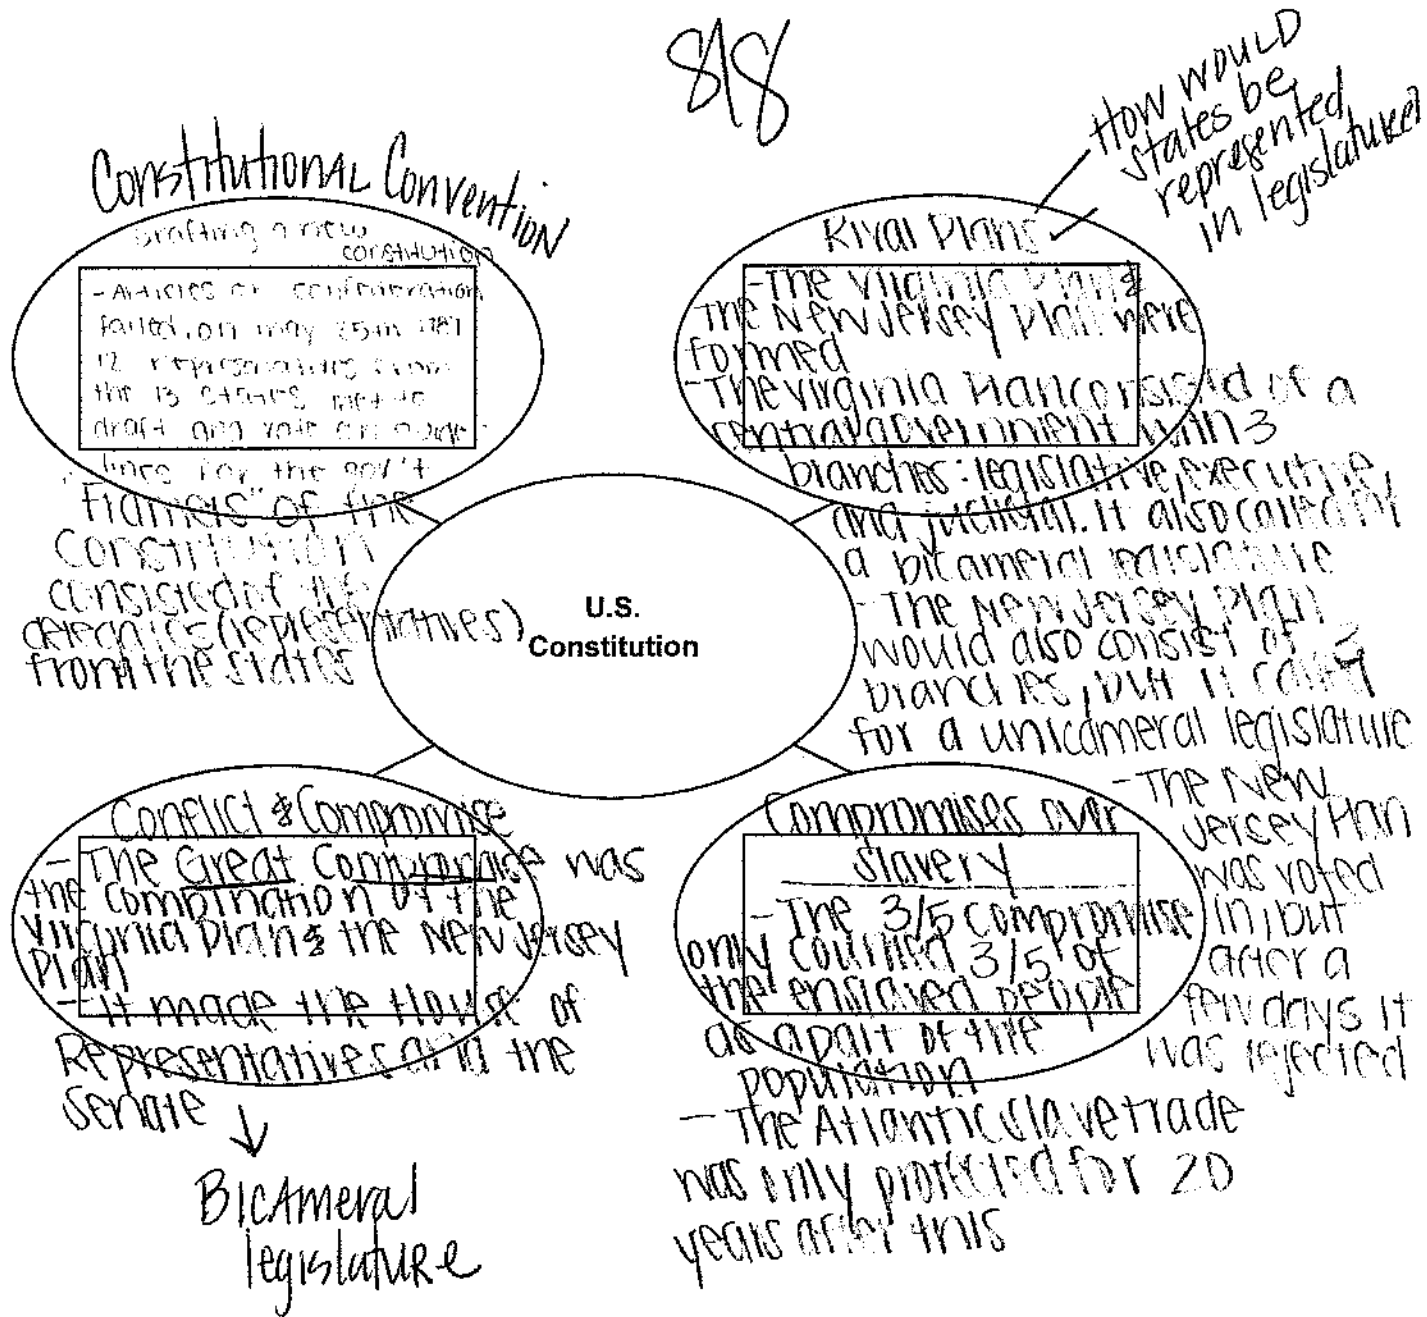 8/8
Constitutional Convention
Drafting a new
constitution
- Articles of confederation
failed, on may 25th 1787
12 representatives from
the 13 states met to
draft and vote on guide
lines for the gov't
"Framers" of the
Constitution
consisted of
delegates (representatives)
from the states
How would
states be
represented
in legislature?
Rival Plans
- The Virginia Plan &
the New Jersey Plan were
formed
- The Virginia Plan consisted of a
central government with 3
branches: legislative, executive,
and judicial. It also called for
a bicameral legislature
- The New Jersey Plan
would also consist of 3
branches, but it called
for a unicameral legislature
- The New
Jersey Plan
was voted
in, but
after a
few days it
was rejected
U.S.
Constitution
Conflict & Compromise
- The Great Compromise was
the combination of the
Virginia Plan & the New Jersey
Plan
- It made the House of
Representatives and the
Senate
Bicameral
legislature
Compromises over
Slavery
- The 3/5 compromise
only counted 3/5 of
the enslaved people
as apart of the
population
- The Atlantic slave trade
was only protected for 20
years after this